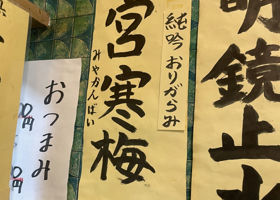 明鏡止水
純吟おりがらみ
宮寒梅
みやかんばい
おつまみ
円
円